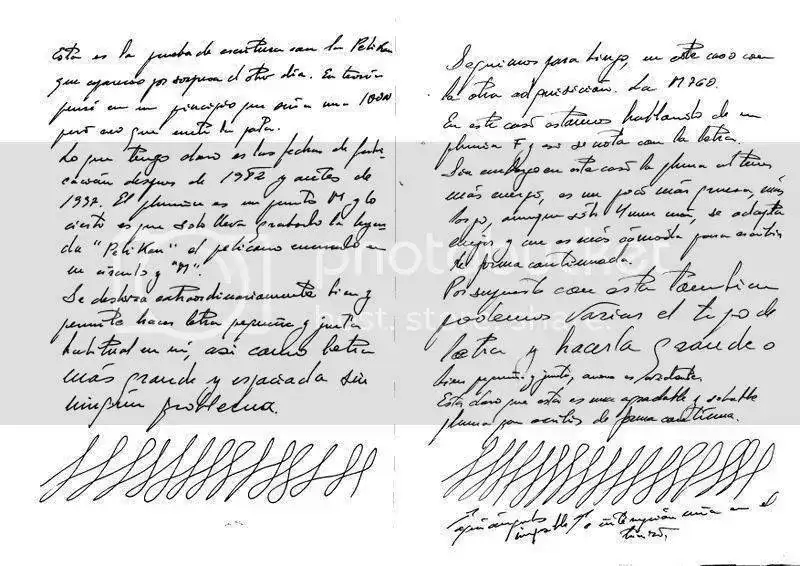 Esta es la prueba de escritura con la Pelikan
que apareció por sorpresa el otro día. En teoría
pensé en un principio que sería una 1000
pero creo que metí la pata.
Lo que tengo claro es las fechas de fabri-
cación despues de 1982 y antes de
1997. El plumín es un punto M y lo
cierto es que solo lleva grabado la leyen-
da "Pelikan" el pelicano encerrado en
un círculo y "M".
Se desliza extraordinariamente bien y
permite hacer letra pequeña y junta
habitual en mí, así como letra
más grande y espaciada sin
ningún problema.
Seguimos para bingo, en este caso con
la otra adquisición. La M760.
En este caso estamos hablando de un
plumín F y eso se nota con la letra.
Sin embargo en este caso la pluma al tener
más cuerpo, es un poco más gruesa, más
larga, aunque sólo 4 mm más, se adapta
mejor y es más cómoda para escribir
de forma continuada.
Por supuesto con esta también
podemos variar el tipo de
letra y hacerla grande o
bien pequeña y junta, como es bastante
Está claro que esta es una agradable y
pluma para escribir de forma continua.
en el
photobucket
host. store. share.